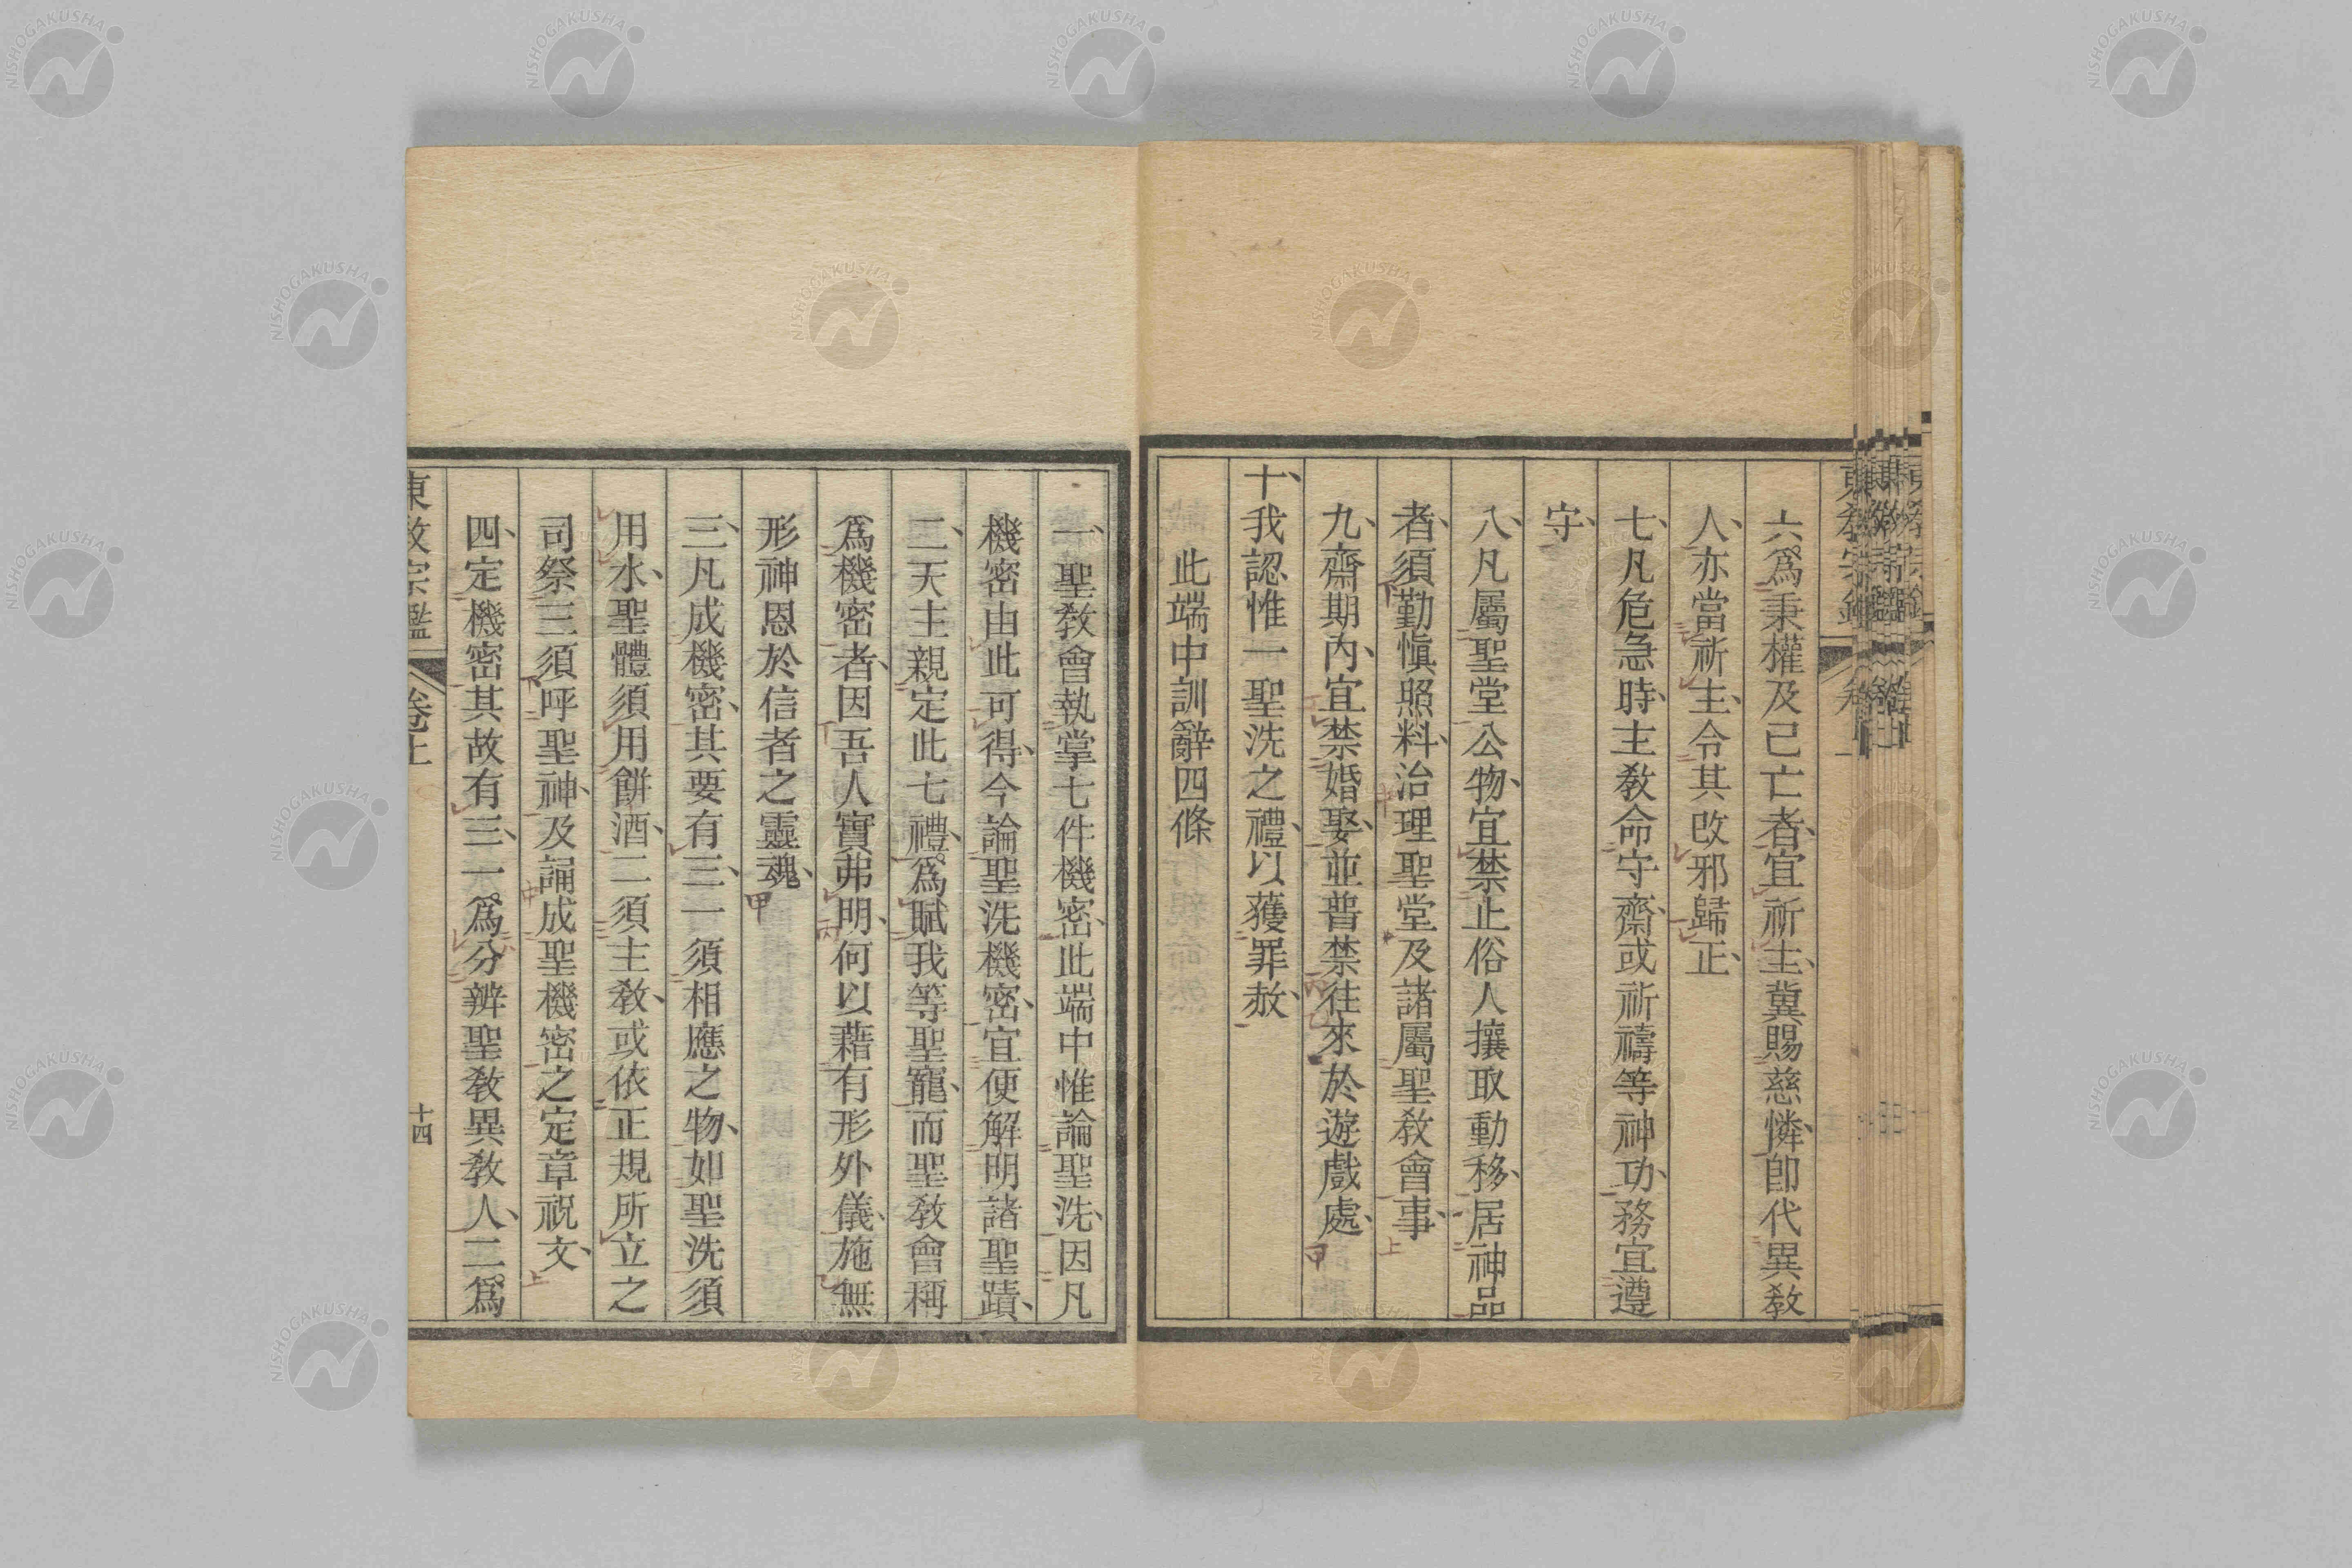 六、爲秉權及已亡者、宜祈主、冀賜慈憐、卽代異敎
人、亦當祈主、令其改邪歸正、
七、凡危急時、主敎命守齋、或祈禱等神功、務宜遵
守、
八、凡屬聖堂公物、宜禁止俗人攘取動移、居神品
者、須勤愼照料、治理聖堂及諸屬聖敎會事、
九、齋期內、宜禁婚娶、並普禁往來於遊戲處、
十、我認惟一聖洗之禮、以獲罪赦、
此端中訓辭四條
一、聖敎會執掌七件機密、此端中惟論聖洗、因凡
機密由此可得、今論聖洗機密、宜便解明諸聖蹟、
二、天主親定此七禮、爲賦我等聖寵、而聖敎會稱
爲機密者、因吾人實弗明、何以藉有形外儀、施無
形神恩於信者之靈魂、
三、凡成機密、其要有三、一須相應之物、如聖洗須
用水、聖體須用餠酒、二須主敎、或依正規所立之
司祭、三須呼聖神、及誦成聖機密之定章祝文、
四、定機密其故有三、一爲分辨聖敎異敎人、二爲
東敎宗鑑
卷上
十四
NISHOGAKUSHA